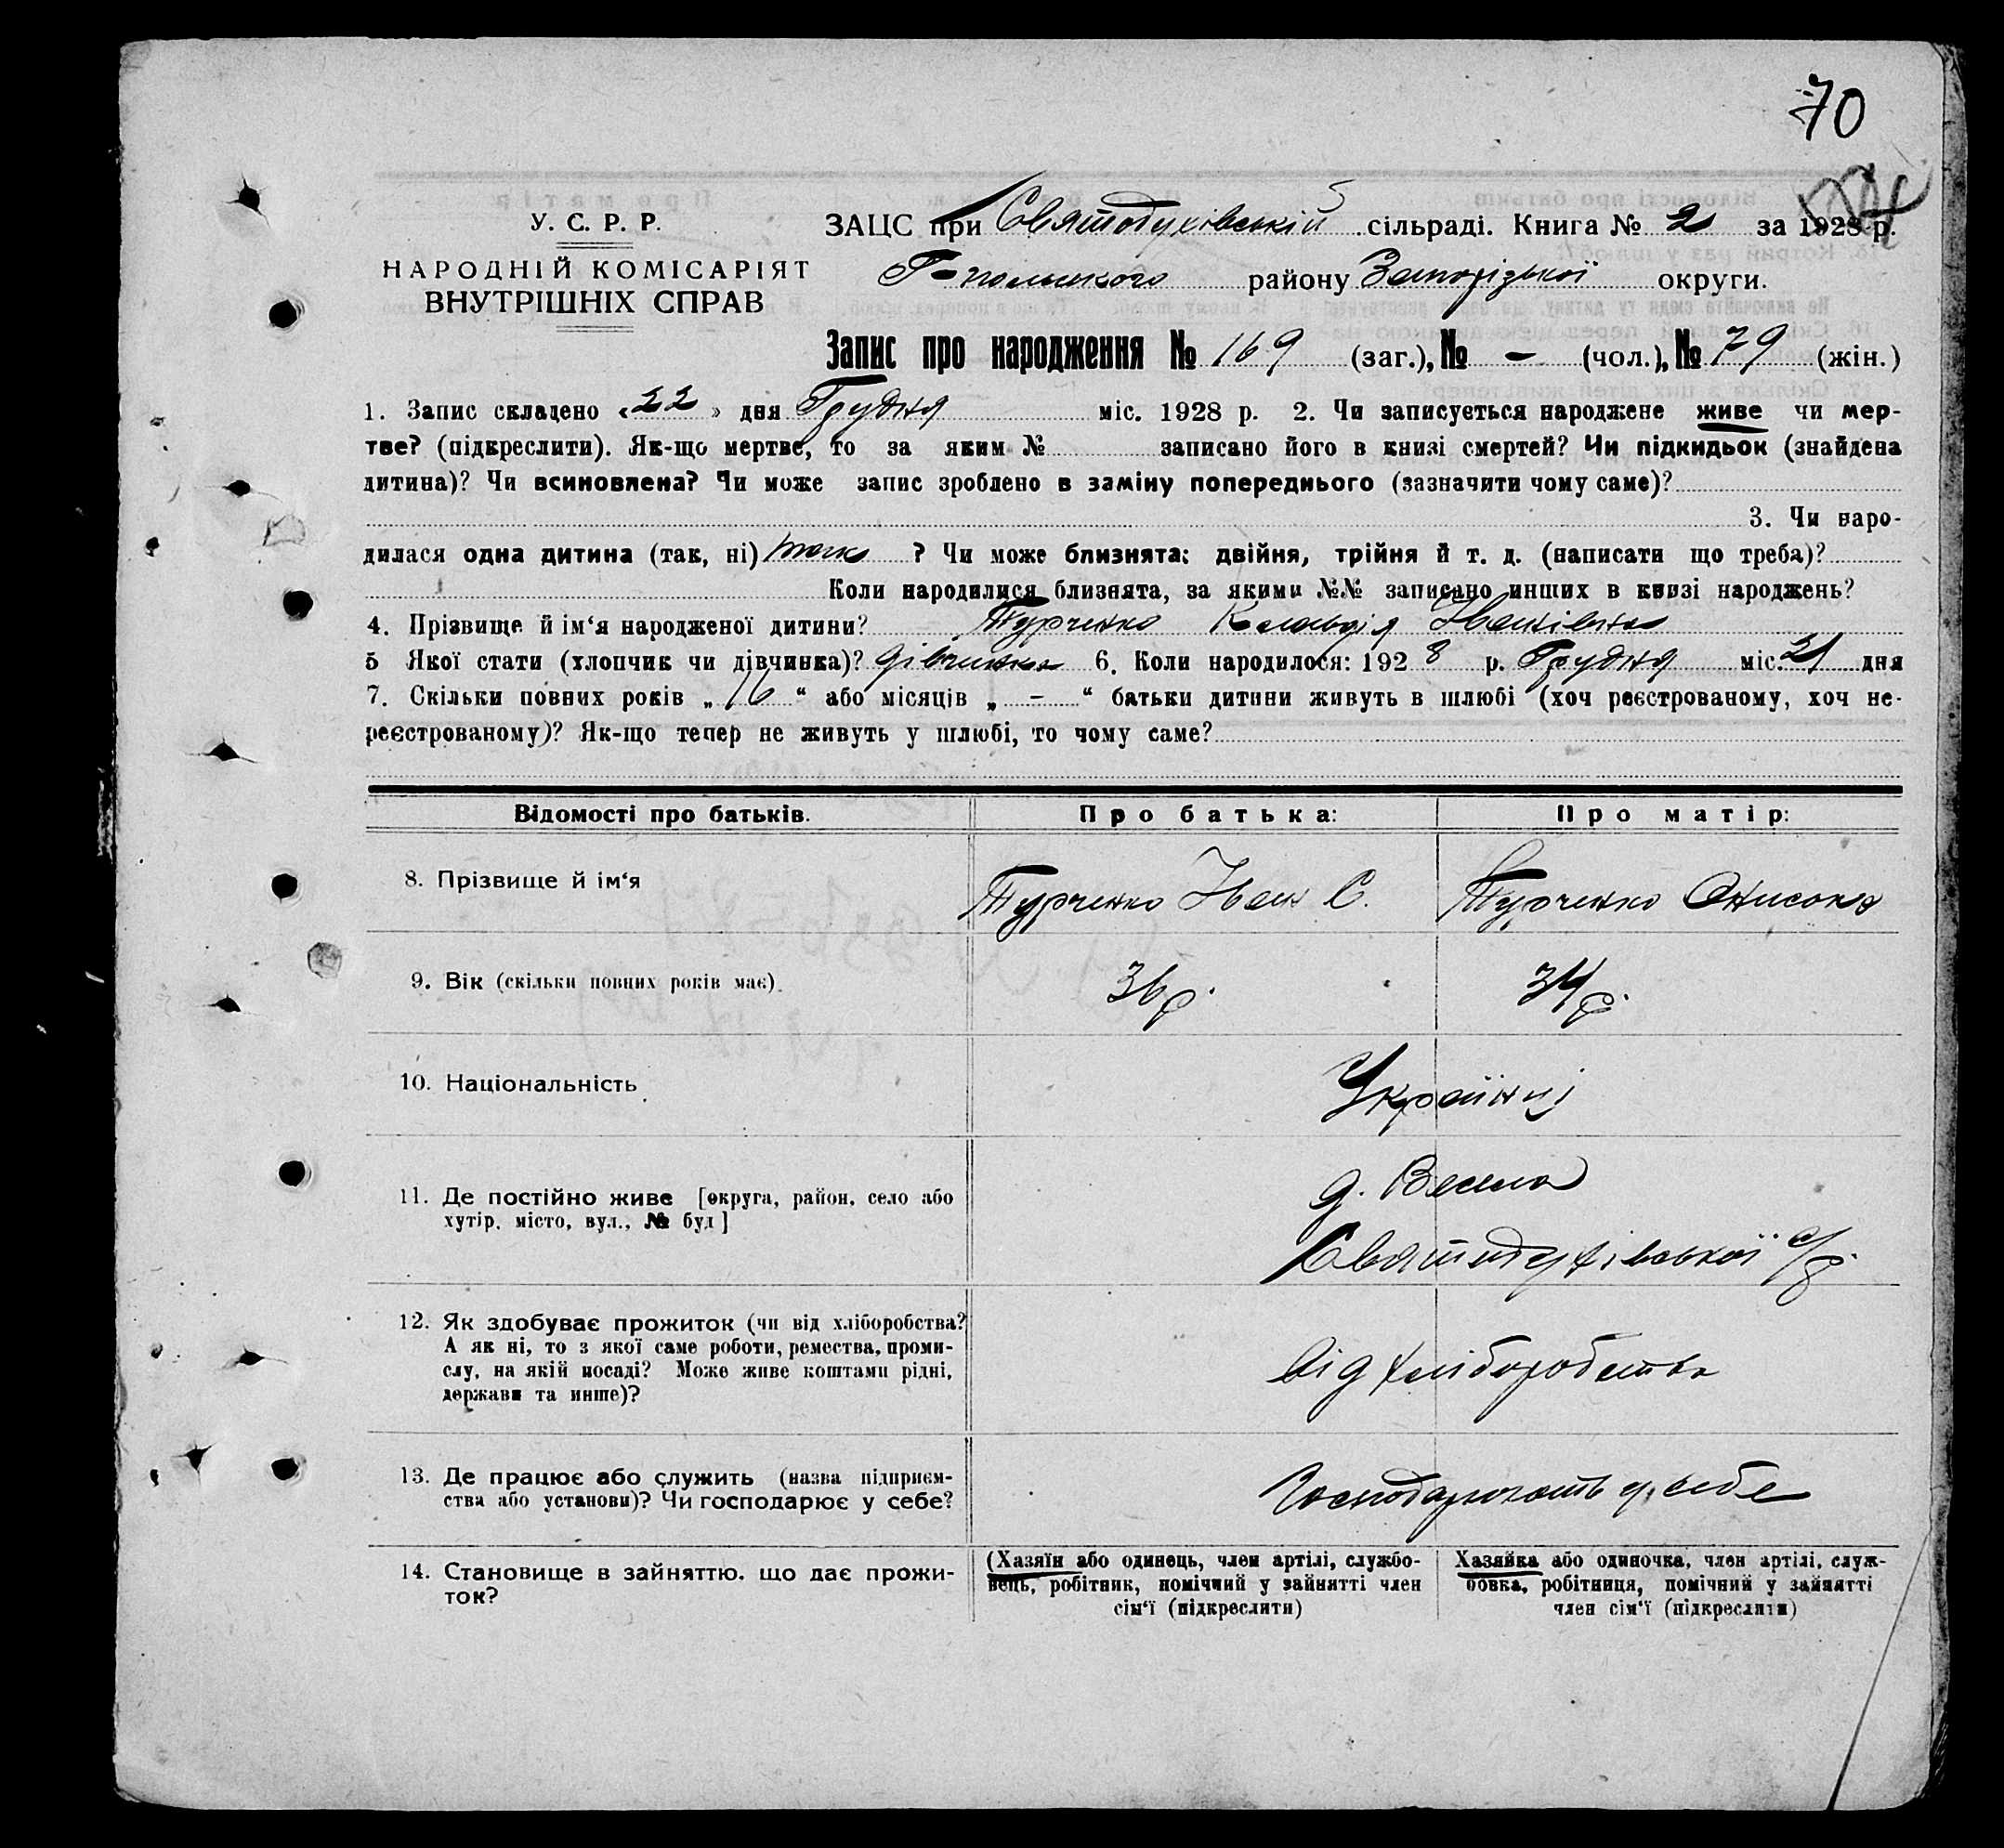 70
У. С. Р. Р.
НАРОДНІЙ КОМІСАРІЯТ
ВНУТРІШНІХ СПРАВ
ЗАЦС при Святодухівській сільраді. Книга № 2 за 1928 р.
Г-польського району Запорізької округи.
Запис про народження № 169 (заг.), № - (чол.), № 79 (жін.)
1. Запис складено «22» дня Грудня міс. 1928 р. 2. Чи записується народжене живе чи мер-
тве? (підкреслити). Як-що мертве, то за яким № записано його в книзі смертей? Чи підкидьок (знайдена
дитина)? Чи всиновлена? Чи може запис зроблено в заміну попереднього (зазначити чому саме)?
3. Чи наро-
дилася одна дитина (так, ні) так ? Чи може близнята: двійня, трійня й т. д. (написати що треба)?
Коли народилися близнята, за якими №№ записано инших в книзі народжень?
4. Прізвище й ім‘я народженої дитини? Турченко Клавдія Іванівна
5 Якої стати (хлопчик чи дівчинка)? дівчинка 6. Коли народилося: 1928 р. Грудня міс. 21 дня
7. Скільки повних років „ 16 “ або місяців „ - “ батьки дитини живуть в шлюбі (хоч реєстрованому, хоч не-
реєстрованому)? Як-що тепер не живуть у шлюбі, то чому саме?
Відомості про батьків. Про батька: Про матір:
8. Прізвище й ім‘я Турченко Іван С. Турченко Онисья
9. Вік (скільки повних років має). 36 р. 34 р.
10. Національність Українці
11. Де постійно живе [округа, район, село або
хутір, місто, вул., № буд]
д. Весела
Святодухівської с/р.
12. Як здобуває прожиток (чи від хліборобства?
А як ні, то з якої саме роботи, ремества, проми-
слу, на якій посаді? Може живе коштами рідні,
держави та инше)?
від хліборобства
13. Де працює або служить (назва підприєм-
ства або установи)? Чи господарює у себе?
Господарюють у себе
14. Становище в зайняттю, що дає прожи-
ток?
(Хазяїн або одинець, член артілі, службо-
вець, робітник, помічний у зайнятті член
сім‘ї (підкреслити)
Хазяйка або одиночка, член артілі, служ-
бовка, робітниця, помічний у зайнятті
член сім‘ї (підкреслити)